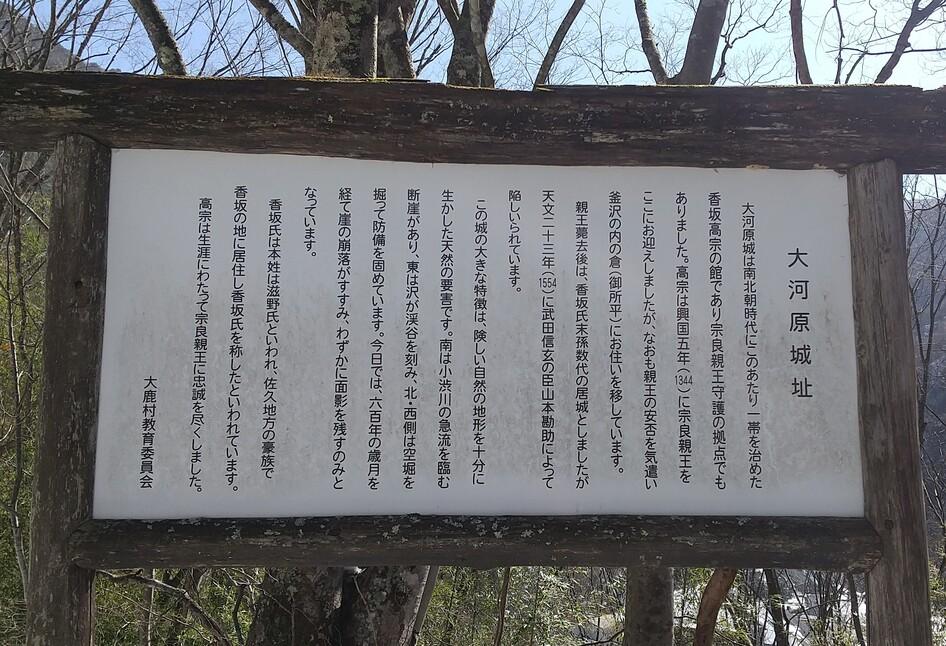 大河原城址
大河原城は南北朝時代にこのあたり一帯を治めた
香坂高宗の館であり宗良親王守護の拠点でも
ありました。高宗は興国五年(1344)に宗良親王を
ここにお迎えしましたが、なおも親王の安否を気遣い
釜沢の内の倉(御所平)にお住いを移しています。
親王薨去後は、香坂氏末孫数代の居城としましたが
天文二十三年(1554)に武田信玄の臣山本勘助によって
陥しいられています。
この城の大きな特徴は、険しい自然の地形を十分に
生かした天然の要害です。南は小渋川の急流を臨む
断崖があり、東は沢が渓谷を刻み、北・西側は空堀を
掘って防備を固めています。今日では、六百年の歳月を
経て崖の崩落がすすみ、わずかに面影を残すのみと
なっています。
香坂氏は本姓は滋野氏といわれ、佐久地方の豪族で
香坂の地に居住し香坂氏を称したといわれています。
高宗は生涯にわたって宗良親王に忠誠を尽くしました。
大鹿村教育委員会